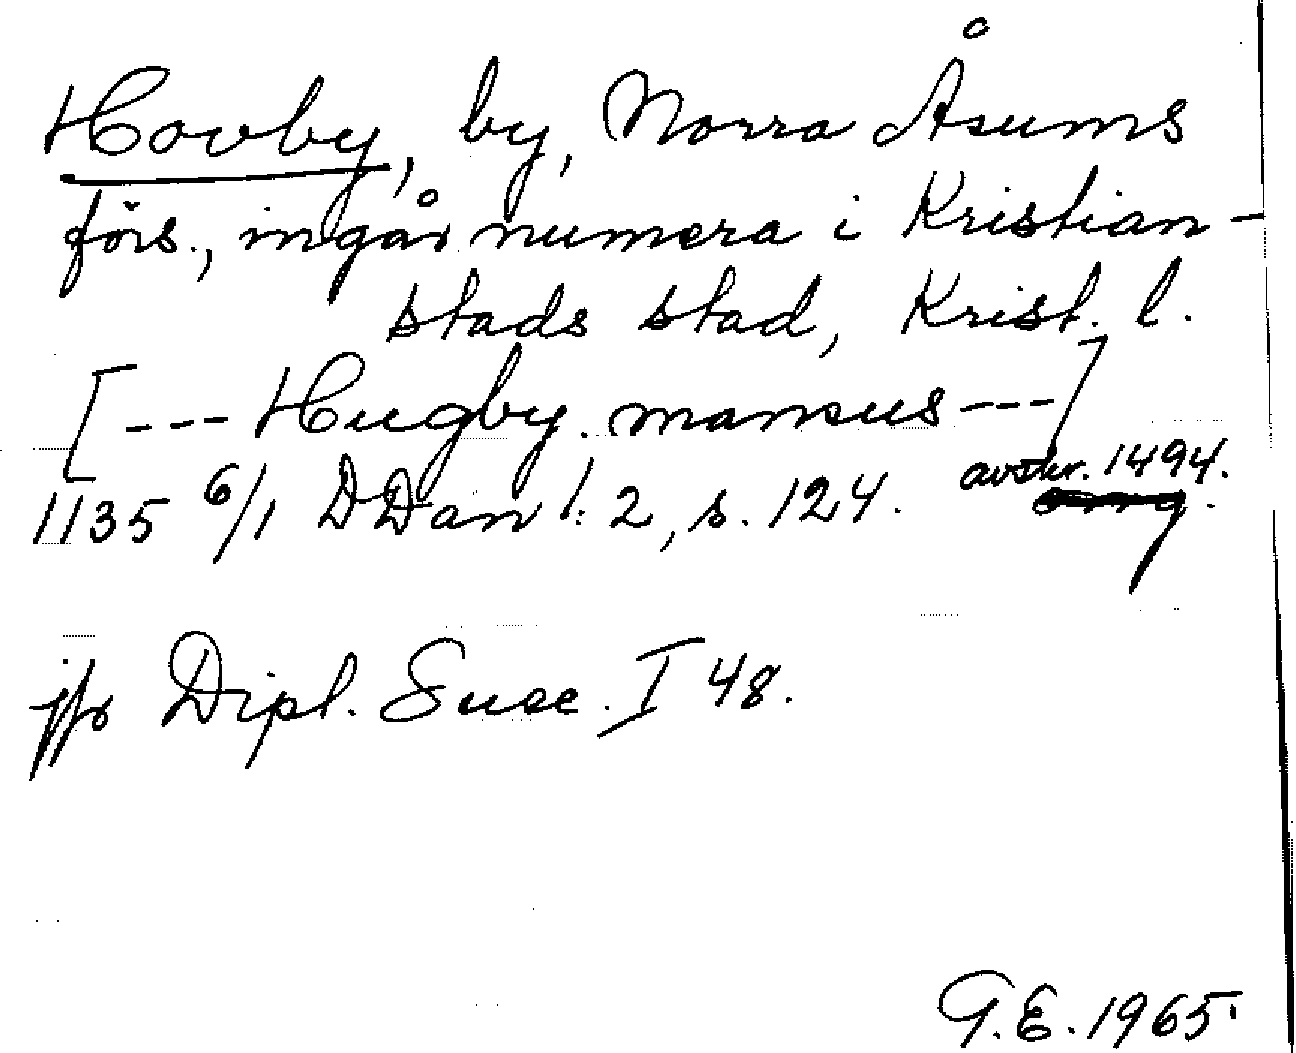 Hovby, by, Norra Åsums
förs., ingår numera i Kristian-
stads stad, Krist. l.
[--- Hugby. mansus ---]
1135 6/1 DDan 1:2, s. 124. avskr. 1494.
jfr Dipl. Suec. I 48.
G.E. 1965.